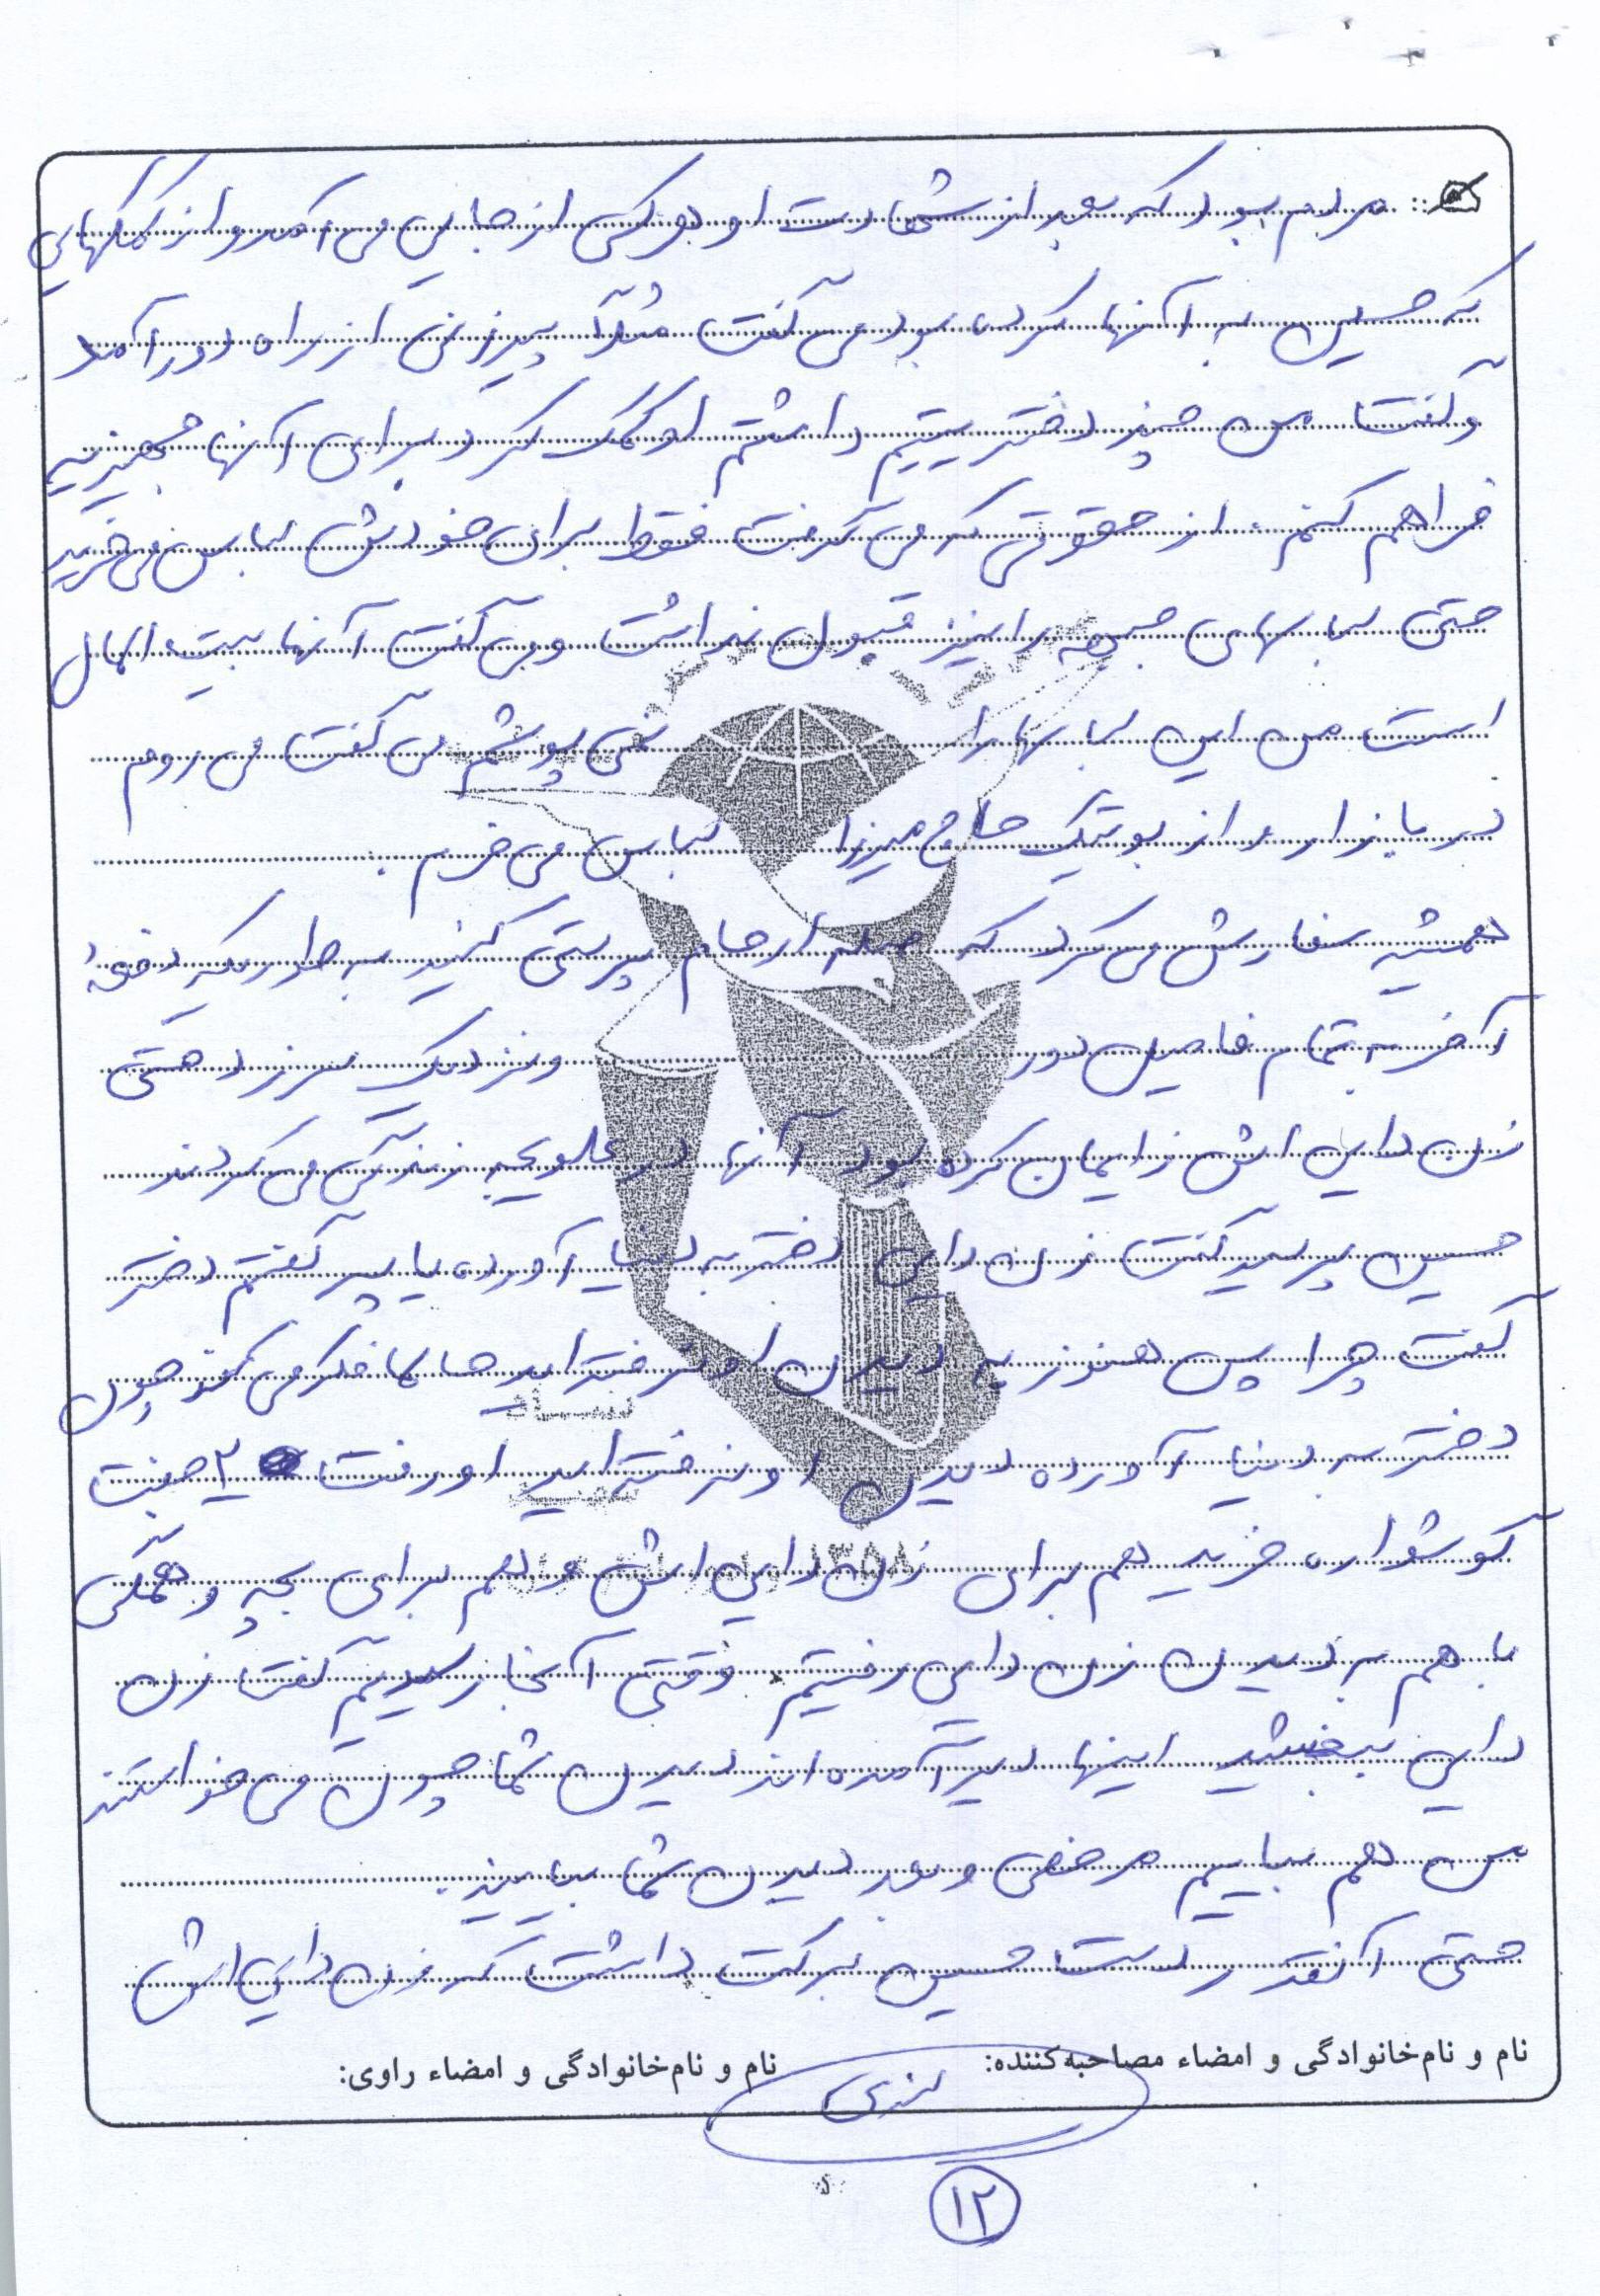 مردم بود که بعد از شهادت او هر کس از جایی می آمد و از کمکهایی
که حسین به آنها کرده بود می گفت مثلاً پیرزنی از راه دور آمد
و گفت من چند دختر یتیم داشتم او کمک کرد برای آنها جهیزیه
فراهم کنم. از حقوقی که می گرفت فقط برای خودش لباس می خرید
حتی لباسهای جبهه را نیز قبول نداشت و می گفت آنها بیت المال
است من این لباسها را نمی پوشم می گفت می روم
در بازار و از بوتیک حاج میرزا لباس می خرم.
همیشه سفارش می کرد که صله ارحام پرستی کنید به طوریکه دفعهٔ
آخر به تمام فامیل دور و نزدیک سر زد حتی
زن دایی اش زایمان کرده بود آنها در علویجه زندگی می کردند
حسین پرسید گفت زن دایی دختر به دنیا آورده یا پسر گفتم دختر
گفت چرا پس هنوز به دیدن او نرفته اید حالما فکر می کنند چون
دختر به دنیا آورده دیدن او نرفته اید او رفت ۲ جفت
گوشواره خرید هم برای زن دایی اش و هم برای بچه و همگی
با هم به دیدن زن دایی رفتیم. وقتی آنجا رسیدیم گفت زن
دایی ببخشید اینها دیر آمده اند دیدن شما چون می خواستند
من هم بیایم مرخصی و بعد دیدن شما بیایند.
حتی آنقدر دست حسین برکت داشت که زن دایی اش
نام و نام‌خانوادگی و امضاء مصاحبه‌کننده:
نام و نام‌خانوادگی و امضاء راوی:
۱۲